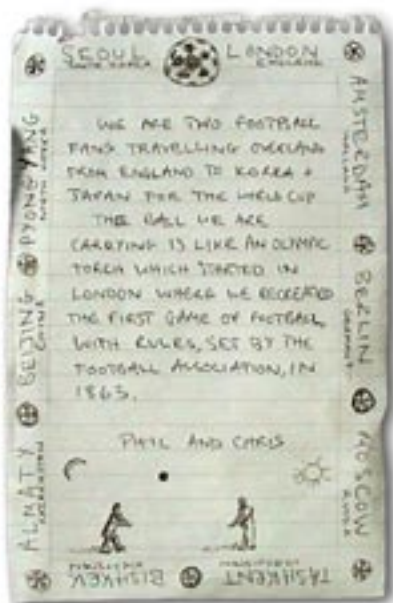 SEOUL LONDON
SOUTH KOREA ENGLAND
AMSTERDAM
HOLLAND
BERLIN
GERMANY
MOSCOW
RUSSIA
TASHKENT
UZBEKISTAN
BISHKEK
KYRGYZSTAN
ALMATY
KAZAKHSTAN
BEIJING
CHINA
PYONGYANG
NORTH KOREA
WE ARE TWO FOOTBALL
FANS TRAVELLING OVERLAND
FROM ENGLAND TO KOREA +
JAPAN FOR THE WORLD CUP
THE BALL WE ARE
CARRYING IS LIKE AN OLYMPIC
TORCH WHICH STARTED IN
LONDON WHERE WE RECREATED
THE FIRST GAME OF FOOTBALL,
WITH RULES, SET BY THE
FOOTBALL ASSOCIATION, IN
1863.
PHIL AND CHRIS